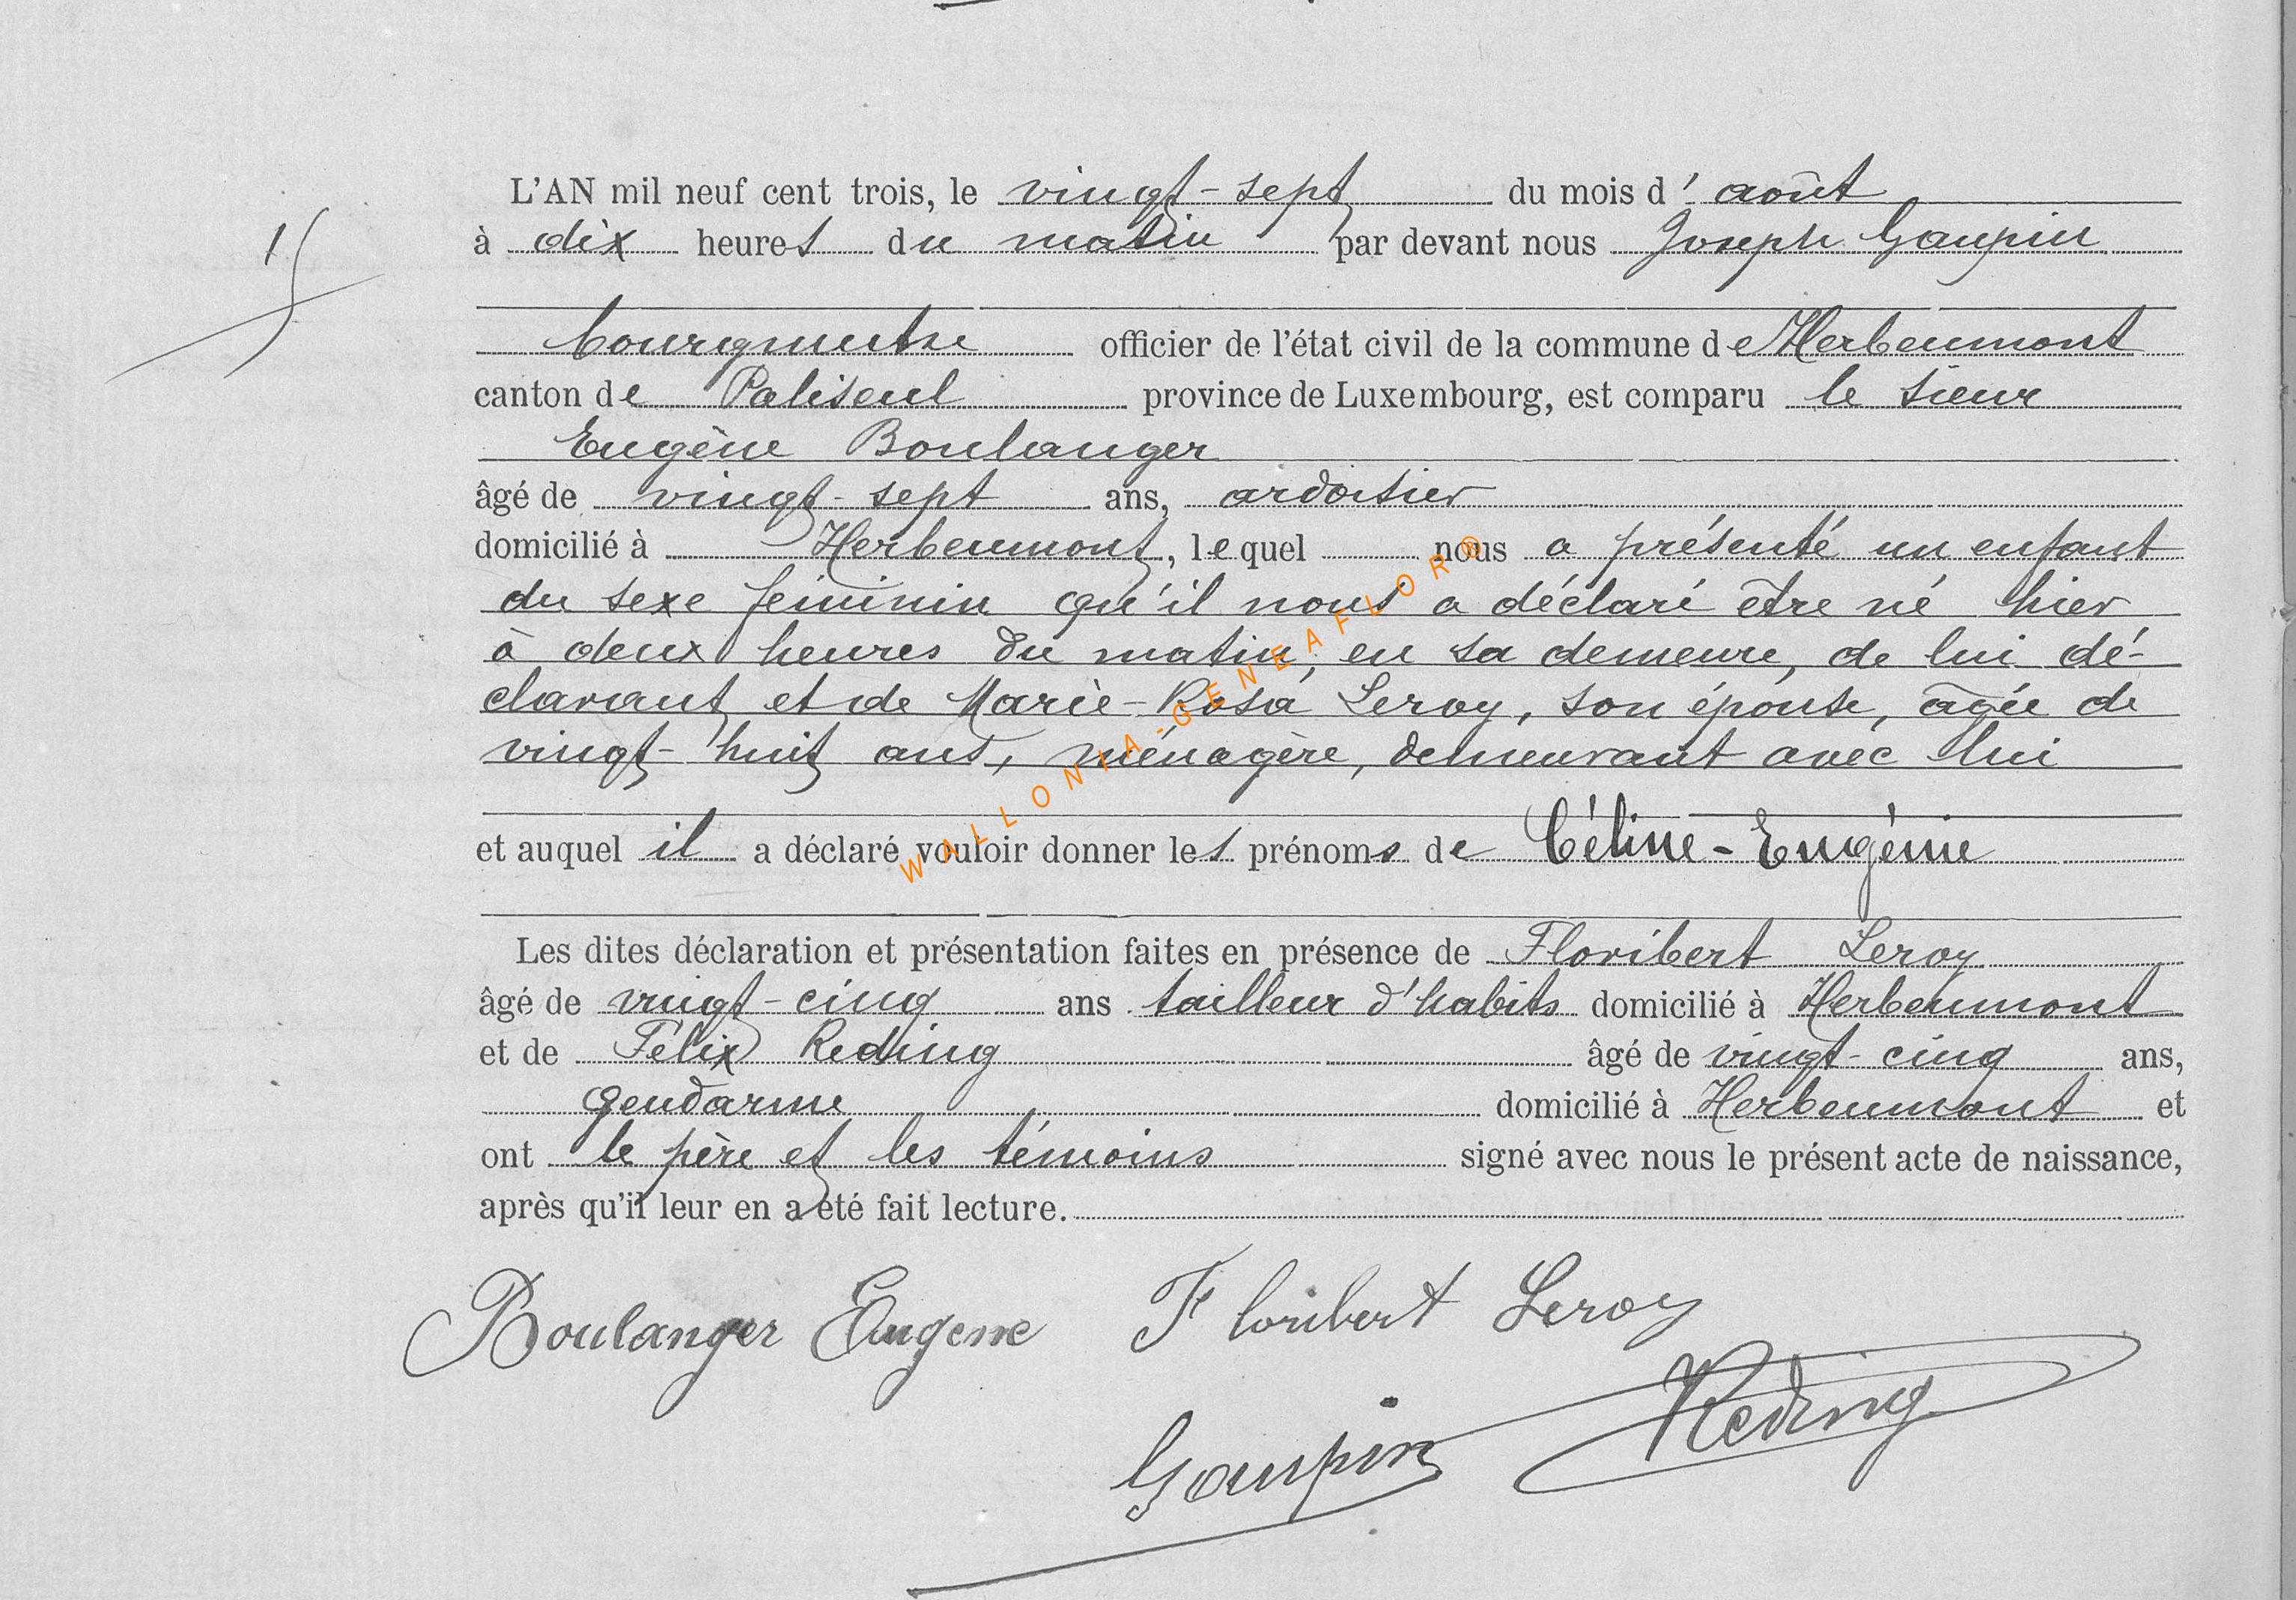 L'AN mil neuf cent trois, le vingt-sept du mois d'août
à dix heures du matin par devant nous Joseph Gaupin
bourgmestre officier de l'état civil de la commune de Herbeumont
canton de Paliseul province de Luxembourg, est comparu le sieur
Eugène Boulanger
âgé de vingt-sept ans, ardoisier
domicilié à Herbeumont, lequel nous a présenté un enfant
du sexe féminin qu'il nous a déclaré être né hier
à deux heures du matin, en sa demeure, de lui dé-
clarant et de Marie-Rosa Leroy, son épouse, âgée de
vingt-huit ans, ménagère, demeurant avec lui
et auquel il a déclaré vouloir donner les prénoms de Céline-Eugénie
Les dites déclaration et présentation faites en présence de Floribert Leroy
âgé de vingt-cinq ans tailleur d'habits domicilié à Herbeumont
et de Félix Reding âgé de vingt-cinq ans,
gendarme domicilié à Herbeumont et
ont le père et les témoins signé avec nous le présent acte de naissance,
après qu'il leur en a été fait lecture.
Boulanger Eugene Floribert Leroy
Gaupin Reding
WALLONIA-GENEAFLOR®